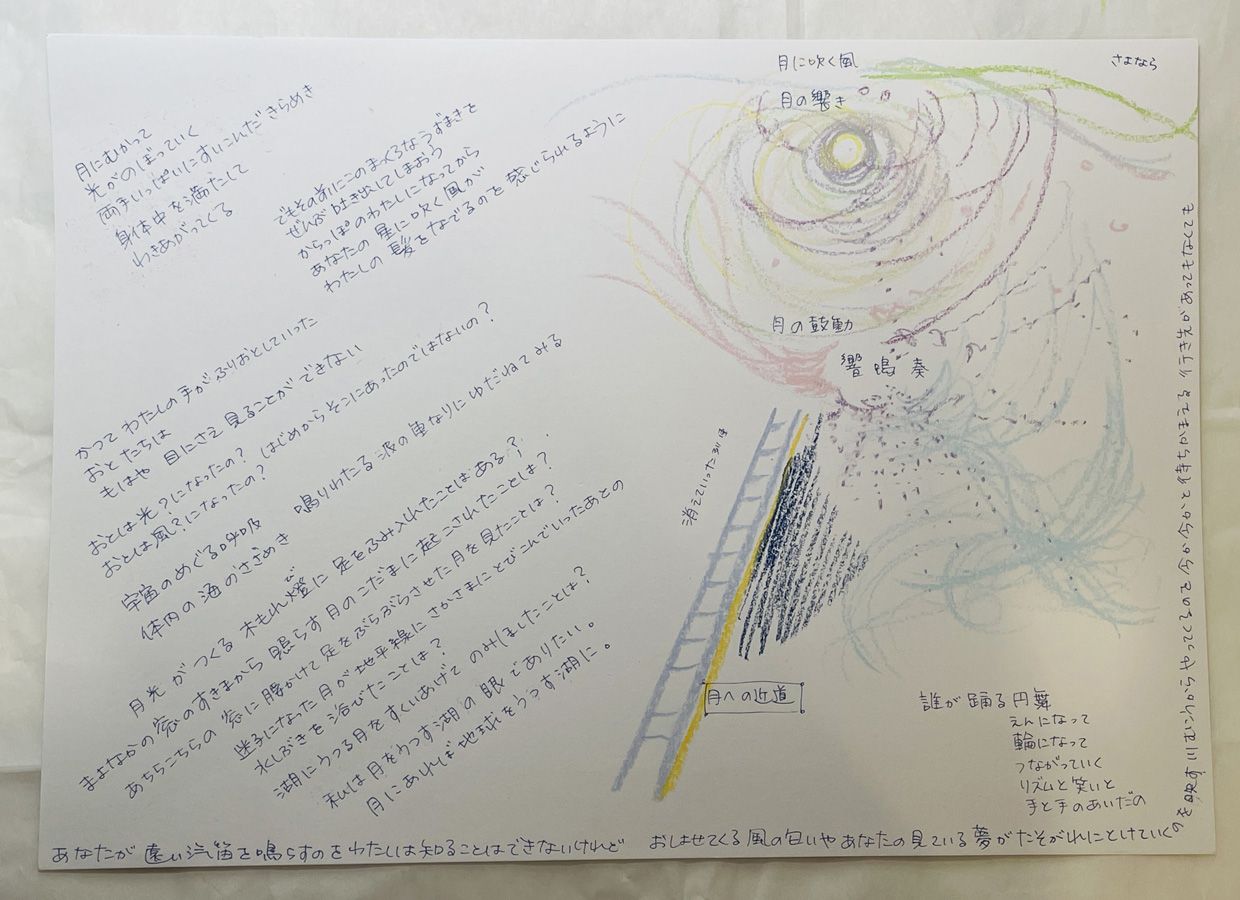 月にむかって
光がのぼっていく
両手いっぱいにすいこんだきらめき
身体中を満たして
わきあがってくる
でもその前にこのまっくろなうずまきを
ぜんぶ吐き出してしまおう
からっぽのわたしになってから
あなたの星に吹く風が
わたしの髪をなでるのを感じられるように
かつてわたしの手がふりおとしていった
おとたちは
もはや目にさえ見ることができない
おとは光?になったの?
おとは風?になったの? はじめからそこにあったのではないの?
宇宙のめぐる呼吸 鳴りわたる波の重なりにゆだねてみる
体内の海のさざめき
月光がつくる木もれ燈に足をふみ入れたことはある?
び
まよなかの窓のすきまから照らす月のこだまに起こされたことは?
あちらこちらの窓に腰かけて足をぶらぶらさせた月を見たことは?
迷子になった月が地平線にさかさまにとびこんでいったあとの
水しぶきを浴びたことは?
湖にうつる月をすくいあげてのみほしたことは?
私は月をうつす湖の眼でありたい。
月にあれば地球をうつす湖に。
月に吹く風
月の響き
さよなら
月の鼓動
響鳴奏
消えていった
月への近道
誰が踊る円舞
えんになって
輪になって
つながっていく
リズムと笑いと
手と手のあいだの
あなたが遠い汽笛を鳴らすのをわたしは知ることはできないけれど おしよせてくる風の匂いやあなたの見ている夢がたそがれにとけていく
のを映す川むこうからやってくるのを今か今かと待ちかまえる 行き先があってもなくても